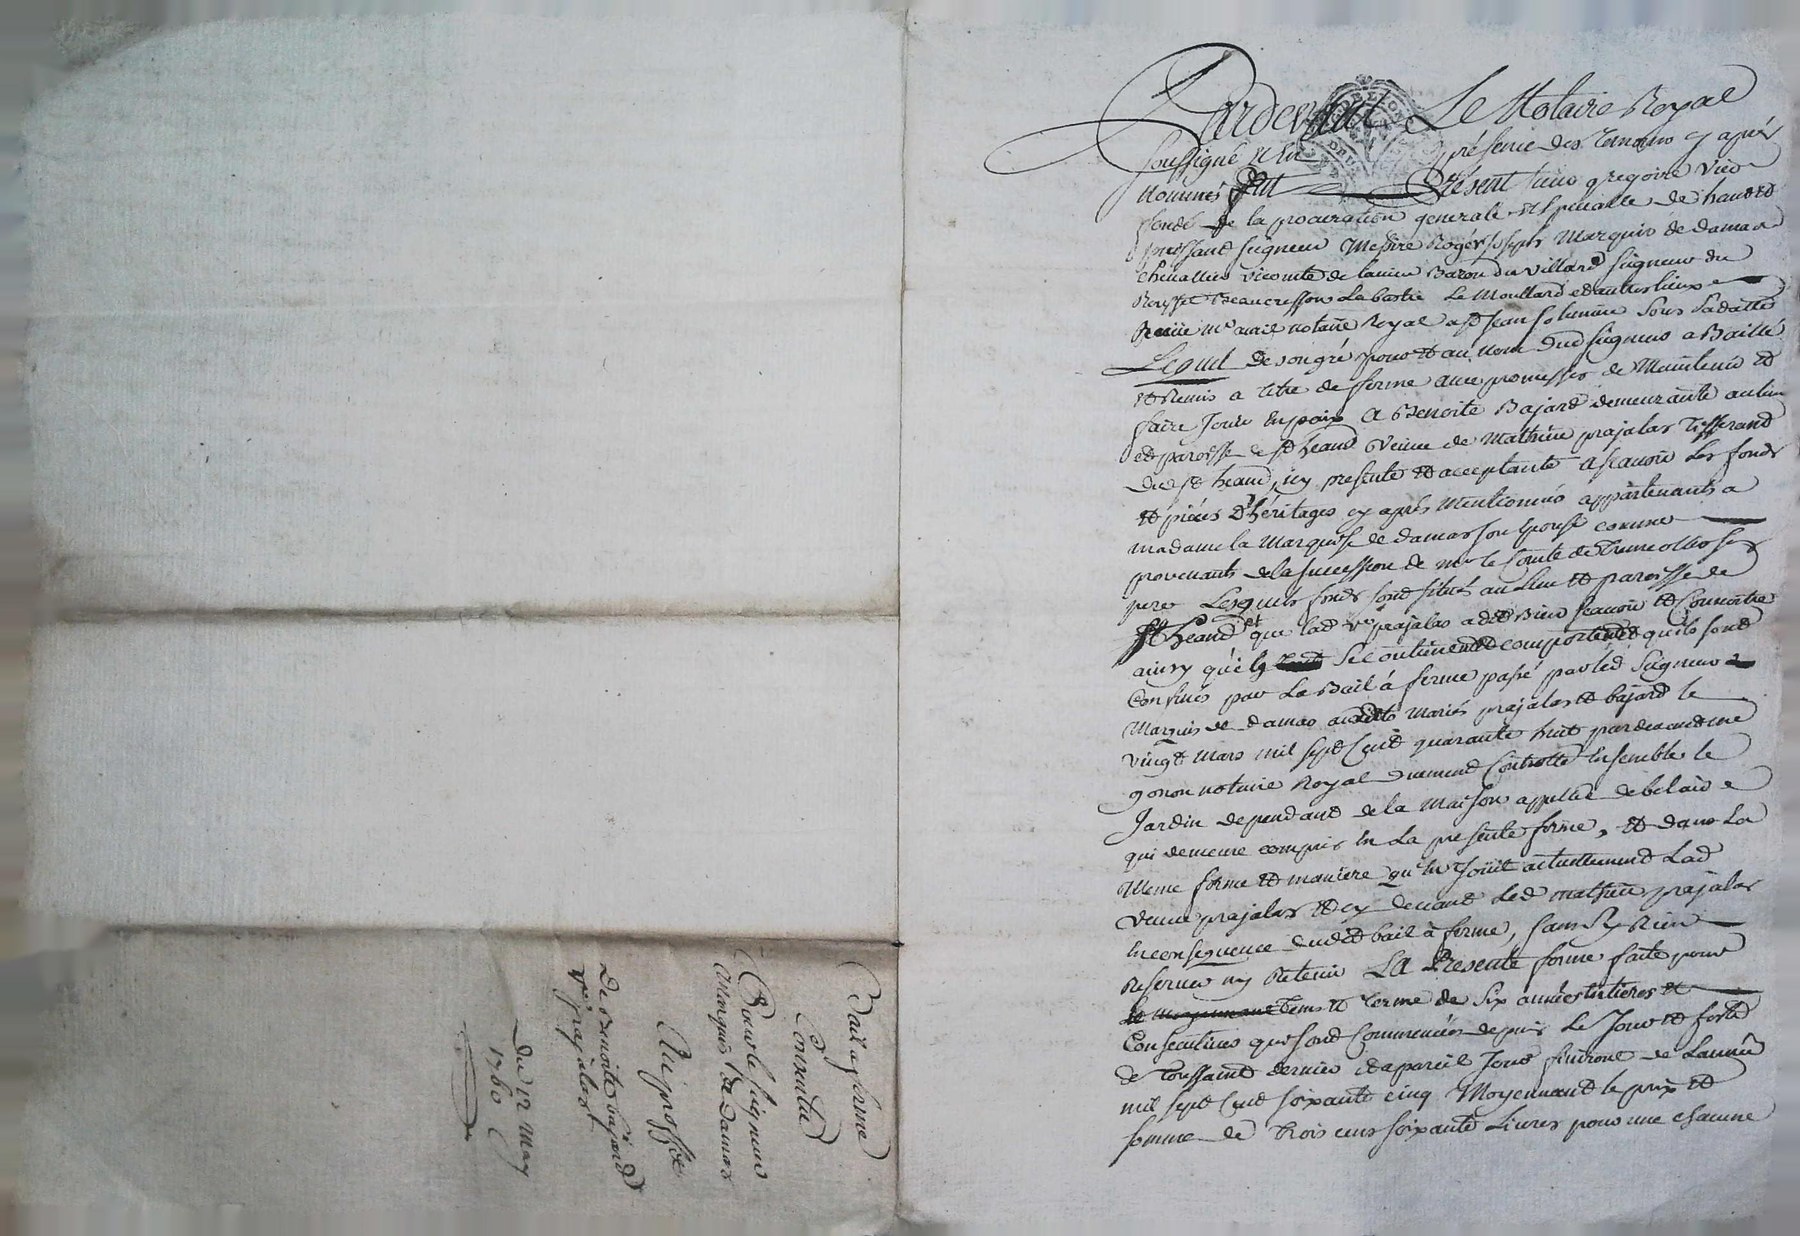 Pardevant Le Notaire Royal
soussigné et en présence des temoins cy aprés
nommés fut Présent sieur gregoire Vieo
fondé de la procuration generale et speciale de haut et
puissant seigneur Messire Rogér Joseph Marquis de damas
chevallier vicomte de Baron du villard seigneur du
Rousset Beaucresson La bastie Le Moullard et autres lieux
Reçüe Me avril notaire Royal a st jean solimieu sous sa datte
Lequel de son gré pour et au nom dud seigneur a Baillé
et Remis a titre de ferme avec promesses de Maintenir et
faire Jouir en paix A Benoite Bajard demeurante au lieu
et paroisse de st heand veuve de Mathieu prajalas Tisserand
dud st heand, icy presente et acceptante Ascavoir Les fonds
et pieces d'héritages cy aprés Mentionnés appartenants a
madame la Marquise de damas son épouse comme
provenants de la succession de mr le Comte de son
pere Lesquels fonds sont situés au Lieu et paroisse de
st heand et que lad ve prajalas a dit Bien scavoir et Connoitre
ainsy qu'ils se contiennent et comportent et qu'ils sont
Confinés par Le Bail á ferme passé par led Seigneur
Marquis de damas auxdits Mariés prajalas et bajard le
vingt Mars mil sept Cent quarante huit pardevant me
gonon notaire Royal duement Controllé Ensemble le
Jardin dependant de la Maison appellée debelair
qui demeure compris en La presente ferme, et dans La
Meme forme et manière qu'en Joüit actuellement Lad
veuve prajalas et cy devant Led mathieu prajalas
En consequence dudit bail à ferme, sans Ry Rien
Reserver ny Retenir LA Presente ferme faite pour
Tems et terme de Six années entieres et
Consecutives qui sont Commencées depuis Le Jour et feste
de Toussaint dernier et a pareil Jour finiront de L'année
mil sept Cent soixante cinq Moyennant le prix et
somme de trois cens soixante Livres pour une chacune
Bail a ferme
Consentu
Pour le seigneur
Marquis de Damas
Au proffit
De Benoite bajard
ve prajalas
Du 12 May
1760